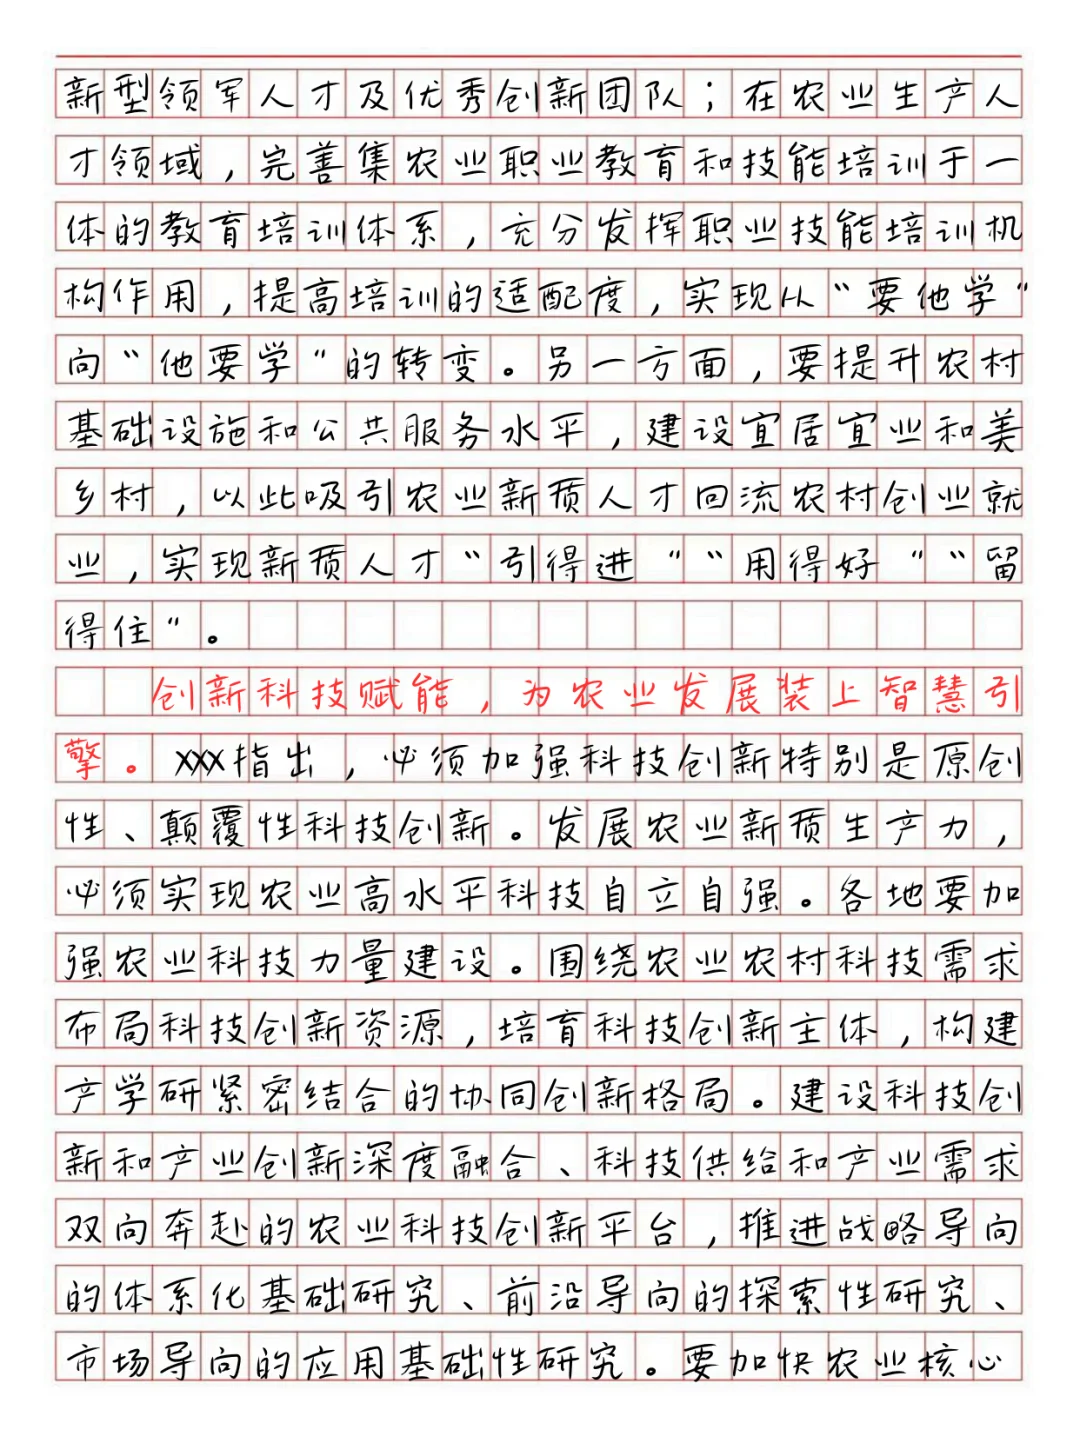 新型领军人才及优秀创新团队；在农业生产人
才领域，完善集农业职业教育和技能培训于一
体的教育培训体系，充分发挥职业技能培训机
构作用，提高培训的适配度，实现从“要他学”
向“他要学”的转变。另一方面，要提升农村
基础设施和公共服务水平，建设宜居宜业和美
乡村，以此吸引农业新质人才回流农村创业就
业，实现新质人才“引得进”“用得好”“留
得住”。
创新科技赋能，为农业发展装上智慧引
擎。XXX指出，必须加强科技创新特别是原创
性、颠覆性科技创新。发展农业新质生产力，
必须实现农业高水平科技自立自强。各地要加
强农业科技力量建设。围绕农业农村科技需求
布局科技创新资源，培育科技创新主体，构建
产学研紧密结合的协同创新格局。建设科技创
新和产业创新深度融合、科技供给和产业需求
双向奔赴的农业科技创新平台，推进战略导向
的体系化基础研究、前沿导向的探索性研究、
市场导向的应用基础性研究。要加快农业核心